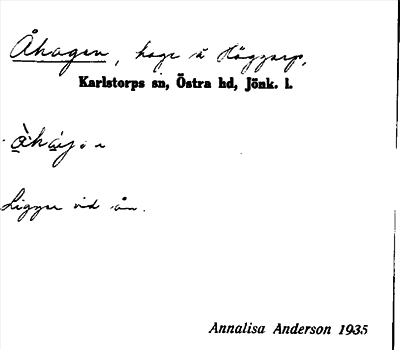 Åhagen, hage i Häggarp,
Karlstorps sn, Östra hd, Jönk. l.
Ligger vid ån.
Annalisa Anderson 1935